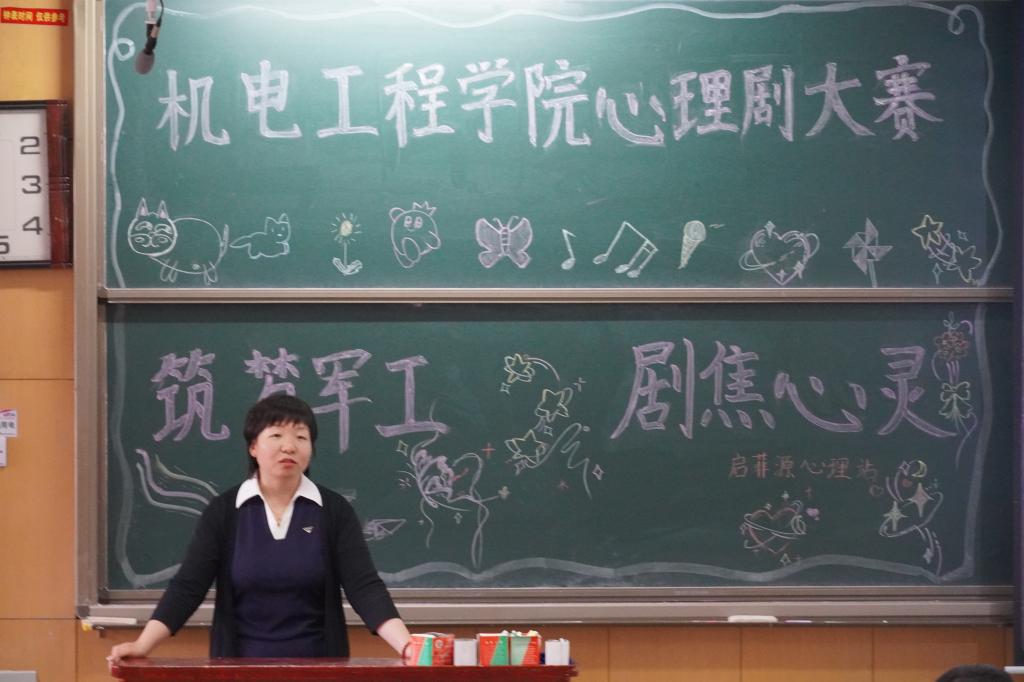 钟表时间 仅供参考
机电工程学院心理剧大赛
2
3
4
5
筑梦军工 剧焦心灵
启菲源心理站